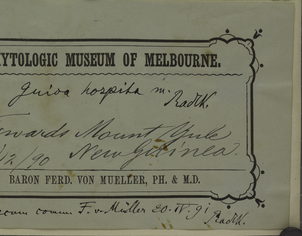 YTOLOGIC MUSEUM OF MELBOURNE.
Guioa hospita m.
Radlk.
owards Mount Yule
/12/90 New Guinea.
BARON FERD. VON MUELLER, PH. & M.D.
comm F. v. Müller 20. IV. 91
Radlk.